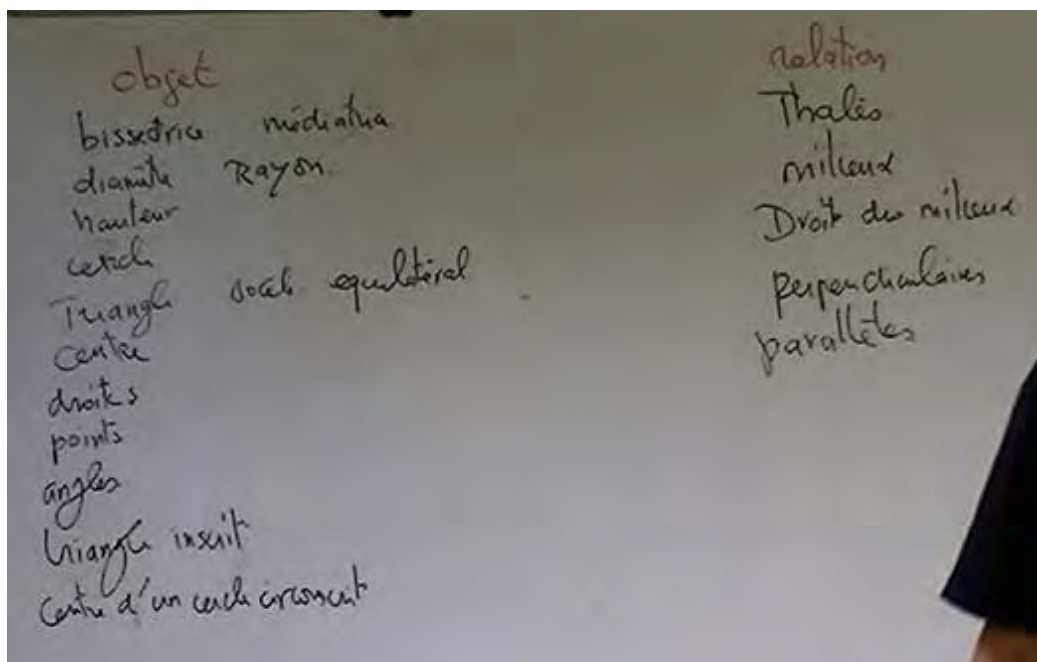 objet
bissectrice médiatrice
diamètre Rayon
hauteur
cercle
Triangle isocèle equilatéral
Centre
droites
points
angles
triangle inscrit
Centre d'un cercle circonscrit
relation
Thalès
milieux
Droite des milieux
perpendiculaires
parallèles